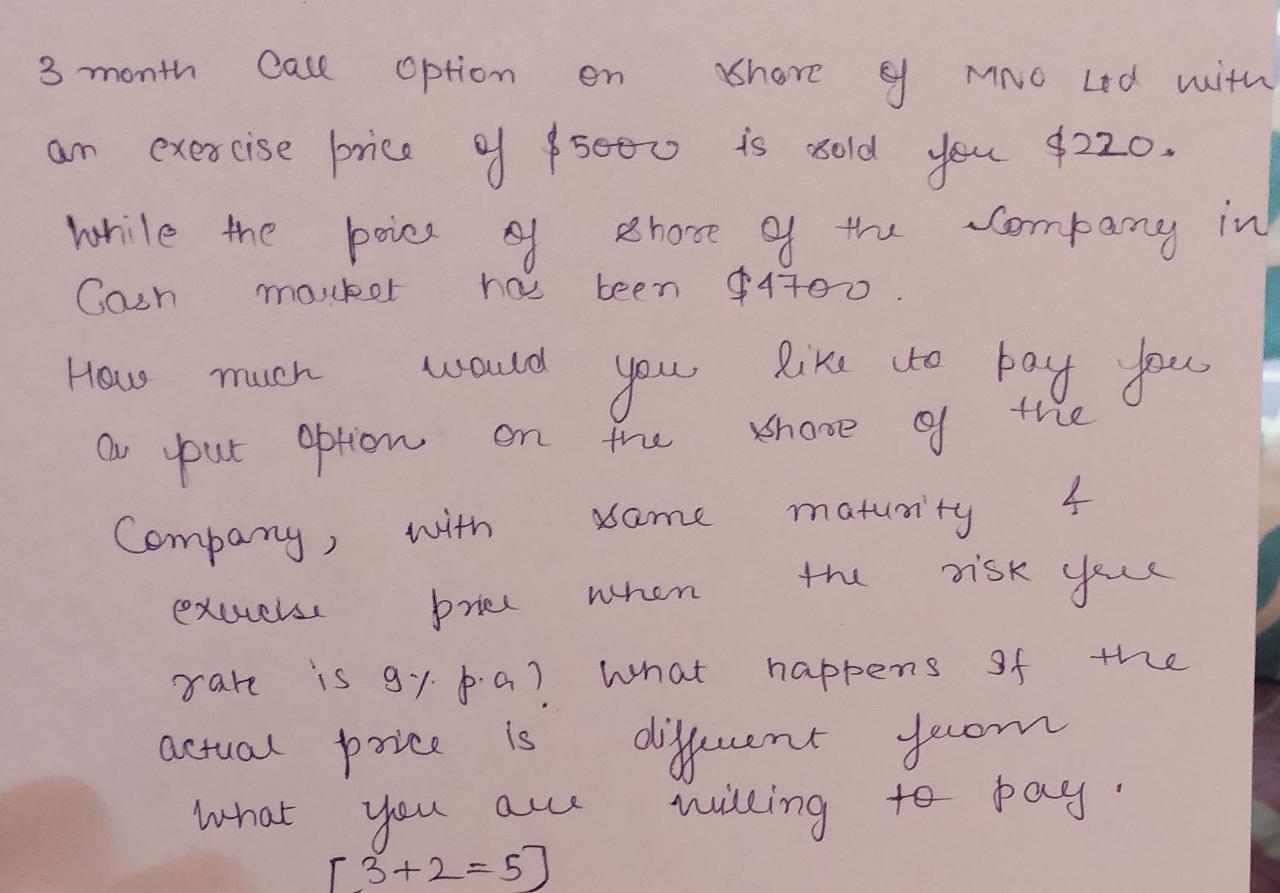 3 month Call option on share of MNO Ltd with
an exercise price of $5000 is sold for $220.
While the price of share of the Company in
Cash market has been $4700.
How much would you like to pay for
a put option on the share of the
Company, with same maturity &
exercise price when the risk free
rate is 9% p.a? What happens If the
actual price is different from
what you are willing to pay.
[3+2=5]